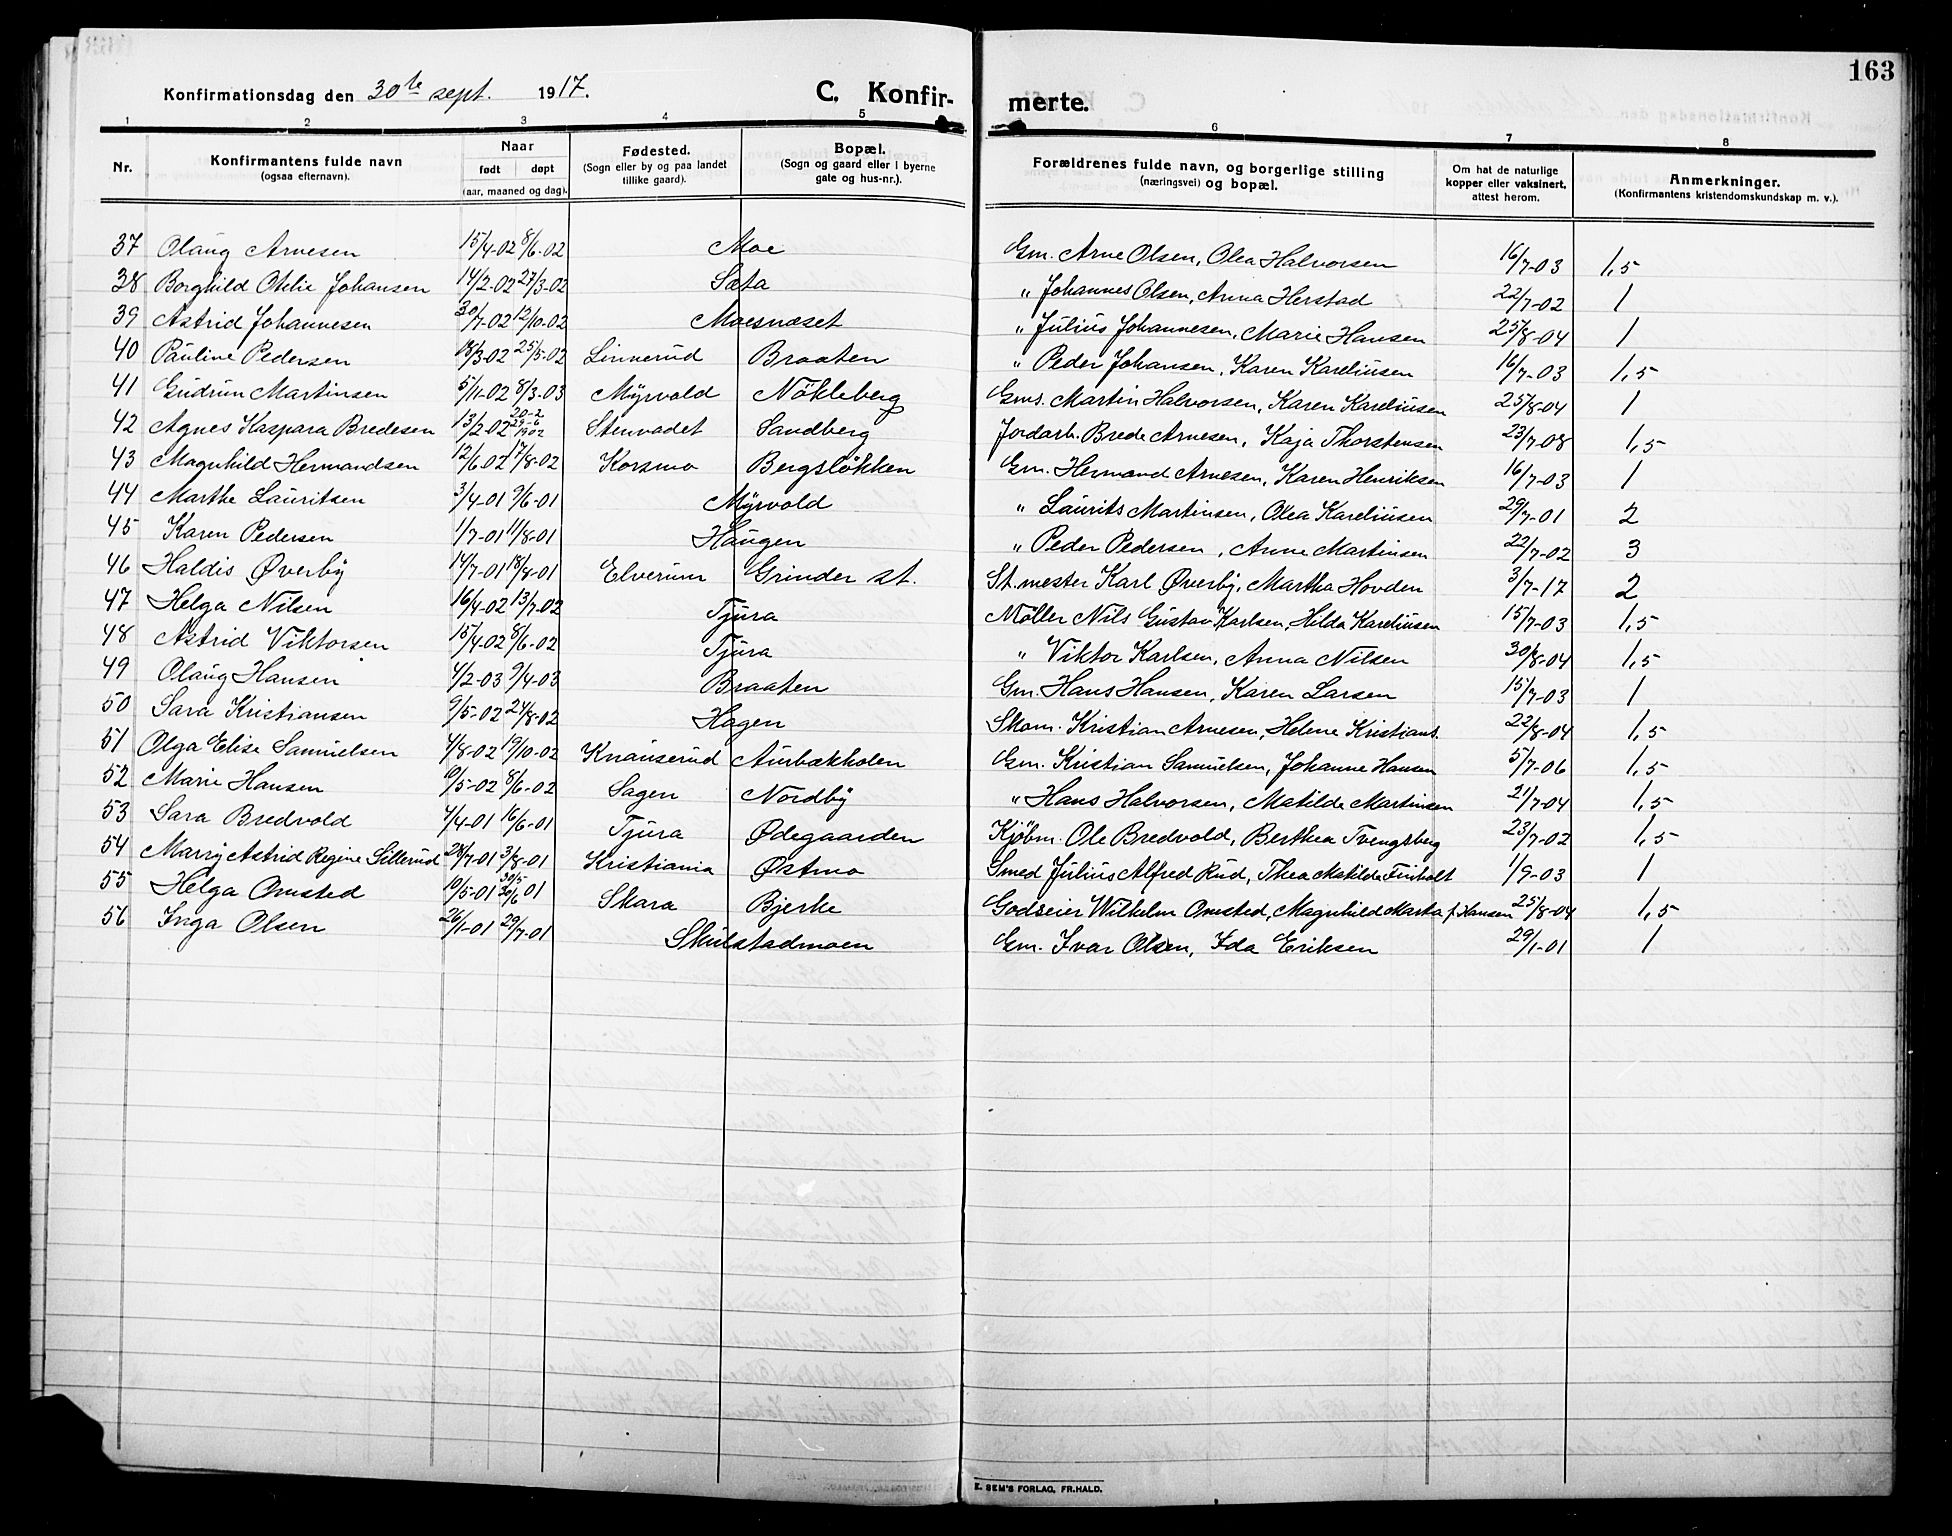 163
Konfirmationsdag den 30te sept. 1917. C. Konfirmerte.
1 2 3 4 5 6 7 8
Nr. Konfirmantens fulde navn (ogsaa efternavn). Naar født døpt (aar, maaned og dag). Fødested. (Sogn eller by og paa landet tillike gaard). Bopæl. (Sogn og gaard eller i byerne gate og hus-nr.). Forældrenes fulde navn, og borgerlige stilling (næringsvei) og bopæl. Om hat de naturlige kopper eller vaksinert, attest herom. Anmerkninger. (Konfirmantens kristendomskundskap m. v.).
37 Olaug Arnesen 15/4-02 8/6-02 Moe Gm. Arne Olsen, Olea Halvorsen 16/7-03 1,5
38 Borghild Otelie Johansen 14/2-02 27/3-02 Sæta " Johannes Olsen, Anna Herstad 22/7-02 1
39 Astrid Johannesen 30/7-02 12/10-02 Moesnæset " Julius Johannesen, Marie Hansen 25/8-04 1
40 Pauline Pedersen 18/3-02 25/5-02 Linnerud Braaten " Peder Johansen, Karen Kareliusen 16/7-03 1,5
41 Gudrun Martinsen 5/11-02 8/3-03 Myrvold Nökleberg Gms. Martin Halvorsen, Karen Kareliusen 25/8-04 1
42 Agnes Kaspara Bredesen 13/2-02 20-2 29-6 1902 Stenvadet Sandberg Jordarb. Brede Arnesen, Kaja Thorstensen 23/7-08 1,5
43 Magnhild Hermandsen 12/6 02 17/8-02 Korsmo Bergslökken Gm. Hermand Arnesen, Karen Henriksen 16/7-03 1
44 Marthe Lauritsen 3/4-01 9/6-01 Myrvold " Laurits Martinsen, Olea Kareliusen 29/7-01 2
45 Karen Pedersen 1/7-01 11/8-01 Haugen " Peder Pedersen, Anne Martinsen 22/7-02 3
46 Haldis Øverby 14/7-01 18/8-01 Elverum Grinder st. St. mester Karl Øverby, Martha Hovden 3/7-17 2
47 Helga Nilsen 16/4-02 13/7-02 Tjura Møller Nils Gustav Karlsen, Hilda Kareliusen 15/7-03 1,5
48 Astrid Viktorsen 15/4-02 8/6-02 Tjura " Viktor Karlsen, Anna Nilsen 30/8-04 1,5
49 Olaug Hansen 4/2-03 9/4-03 Braaten Gm. Hans Hansen, Karen Larsen 15/7-03 1
50 Sara Kristiansen 9/5-02 24/8-02 Hagen Skom. Kristian Arnesen, Helene Kristians. 22/8-04 1,5
51 Olga Elise Samuelsen 4/8-02 19/10-02 Knauserud Aurbækholen Gm. Kristian Samuelsen, Johanne Hansen 5/7-06 1,5
52 Marie Hansen 9/5-02 8/6-02 Sagen Nordby " Hans Halvorsen, Matilde Martinsen 21/7-04 1,5
53 Sara Bredvold 4/4-01 16/6-01 Tjura Ødegaarden Kjøbm. Ole Bredvold, Berthea Tvengsberg 23/7-02 1,5
54 Marry Astrid Regine Sillerud 28/7-01 3/8-01 Kristiania Østmo Smed Julius Alfred Rud, Thea Matilde Finholt 1/9-03 1
55 Helga Omsted 19/5-01 30/5 20/6 01 Skara Bjerke Godseier Wilhelm Omsted, Magnhild Marta f. Hansen 25/8-04 1,5
56 Inga Olsen 26/1-01 29/7-01 Skulstadmoen Gm. Ivar Olsen, Ida Eriksen 29/1-01 1
E. SEM'S FORLAG, FR.HALD.